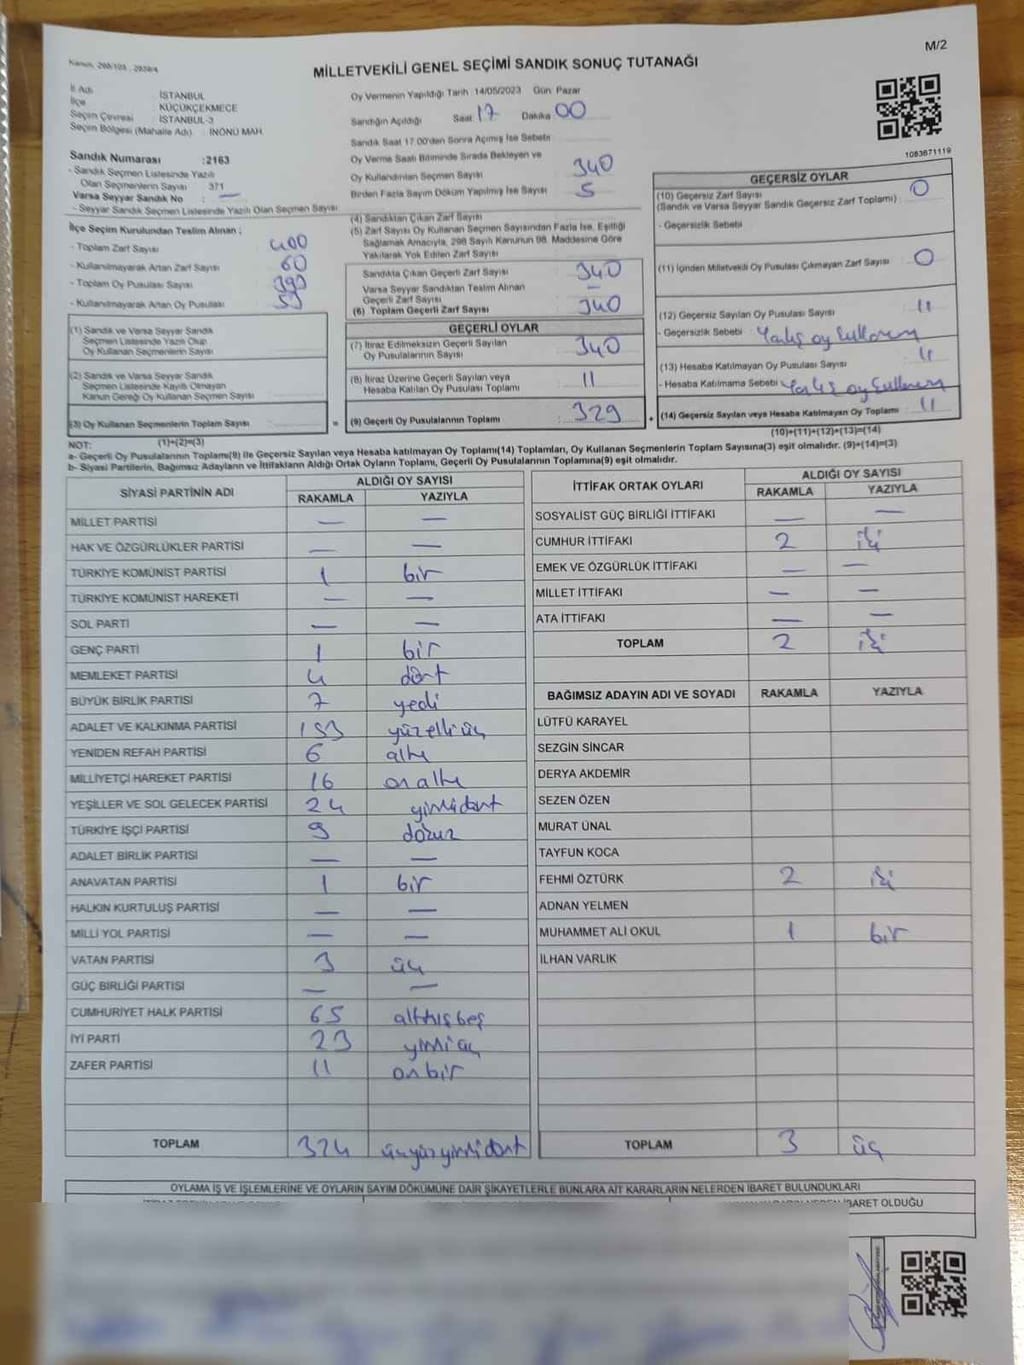 Kanun, 298/105 , 2839/4
M/2
MİLLETVEKİLİ GENEL SEÇİMİ SANDIK SONUÇ TUTANAĞI
İl Adı : İSTANBUL
İlçe : KÜÇÜKÇEKMECE
Seçim Çevresi : İSTANBUL-3
Seçim Bölgesi (Mahalle Adı) : İNÖNÜ MAH.
Sandık Numarası :2163
- Sandık Seçmen Listesinde Yazılı
Olan Seçmenlerin Sayısı 371
Varsa Seyyar Sandık No : —
- Seyyar Sandık Seçmen Listesinde Yazılı Olan Seçmen Sayısı
İlçe Seçim Kurulundan Teslim Alınan ;
- Toplam Zarf Sayısı 400
- Kullanılmayarak Artan Zarf Sayısı 60
- Toplam Oy Pusulası Sayısı 390
- Kullanılmayarak Artan Oy Pusulası
(1) Sandık ve Varsa Seyyar Sandık
Seçmen Listesinde Yazılı Olup
Oy Kullanan Seçmenlerin Sayısı
(2) Sandık ve Varsa Seyyar Sandık
Seçmen Listesinde Kayıtlı Olmayan
Kanun Gereği Oy Kullanan Seçmen Sayısı
(3) Oy Kullanan Seçmenlerin Toplam Sayısı =
(1)+(2)=(3)
Oy Vermenin Yapıldığı Tarih :14/05/2023 Gün: Pazar
Sandığın Açıldığı Saat 17 Dakika 00
Sandık Saat 17.00'den Sonra Açılmış İse Sebebi
Oy Verme Saati Bitiminde Sırada Bekleyen ve
Oy Kullandırılan Seçmen Sayısı 340
Birden Fazla Sayım Döküm Yapılmış İse Sayısı 5
(4) Sandıktan Çıkan Zarf Sayısı
(5) Zarf Sayısı Oy Kullanan Seçmen Sayısından Fazla İse, Eşitliği
Sağlamak Amacıyla, 298 Sayılı Kanunun 98. Maddesine Göre
Yakılarak Yok Edilen Zarf Sayısı
Sandıkta Çıkan Geçerli Zarf Sayısı 340
Varsa Seyyar Sandıktan Teslim Alınan
Geçerli Zarf Sayısı —
(6) Toplam Geçerli Zarf Sayısı 340
GEÇERLİ OYLAR
(7) İtiraz Edilmeksizin Geçerli Sayılan
Oy Pusulalarının Sayısı 340
(8) İtiraz Üzerine Geçerli Sayılan veya
Hesaba Katılan Oy Pusulası Toplamı 11
(9) Geçerli Oy Pusulalarının Toplamı : 329 +
1083671119
GEÇERSİZ OYLAR
(10) Geçersiz Zarf Sayısı 0
(Sandık ve Varsa Seyyar Sandık Geçersiz Zarf Toplamı) :
- Geçersizlik Sebebi
(11) İçinden Milletvekili Oy Pusulası Çıkmayan Zarf Sayısı 0
(12) Geçersiz Sayılan Oy Pusulası Sayısı 11
- Geçersizlik Sebebi : Yanlış oy kullanım
(13) Hesaba Katılmayan Oy Pusulası Sayısı 11
- Hesaba Katılmama Sebebi Yanlış oy kullanım
(14) Geçersiz Sayılan veya Hesaba Katılmayan Oy Toplamı 11
(10)+(11)+(12)+(13)=(14)
NOT:
a- Geçerli Oy Pusulalarının Toplamı(9) ile Geçersiz Sayılan veya Hesaba katılmayan Oy Toplamı(14) Toplamları, Oy Kullanan Seçmenlerin Toplam Sayısına(3) eşit olmalıdır. (9)+(14)=(3)
b- Siyasi Partilerin, Bağımsız Adayların ve İttifakların Aldığı Ortak Oyların Toplamı, Geçerli Oy Pusulalarının Toplamına(9) eşit olmalıdır.
SİYASİ PARTİNİN ADI ALDIĞI OY SAYISI
RAKAMLA YAZIYLA
MİLLET PARTİSİ — —
HAK VE ÖZGÜRLÜKLER PARTİSİ — —
TÜRKİYE KOMÜNİST PARTİSİ 1 bir
TÜRKİYE KOMÜNİST HAREKETİ — —
SOL PARTİ — —
GENÇ PARTİ 1 bir
MEMLEKET PARTİSİ 4 dört
BÜYÜK BİRLİK PARTİSİ 7 yedi
ADALET VE KALKINMA PARTİSİ 153 yüzelliüç
YENİDEN REFAH PARTİSİ 6 altı
MİLLİYETÇİ HAREKET PARTİSİ 16 onaltı
YEŞİLLER VE SOL GELECEK PARTİSİ 24 yirmidört
TÜRKİYE İŞÇİ PARTİSİ 9 dokuz
ADALET BİRLİK PARTİSİ — —
ANAVATAN PARTİSİ 1 bir
HALKIN KURTULUŞ PARTİSİ — —
MİLLİ YOL PARTİSİ — —
VATAN PARTİSİ 3 üç
GÜÇ BİRLİĞİ PARTİSİ — —
CUMHURİYET HALK PARTİSİ 65 altmışbeş
İYİ PARTİ 23 yirmiüç
ZAFER PARTİSİ 11 onbir
TOPLAM 324 üçyüzyirmidört
İTTİFAK ORTAK OYLARI ALDIĞI OY SAYISI
RAKAMLA YAZIYLA
SOSYALİST GÜÇ BİRLİĞİ İTTİFAKI — —
CUMHUR İTTİFAKI 2 iki
EMEK VE ÖZGÜRLÜK İTTİFAKI — —
MİLLET İTTİFAKI — —
ATA İTTİFAKI — —
TOPLAM 2 iki
BAĞIMSIZ ADAYIN ADI VE SOYADI RAKAMLA YAZIYLA
LÜTFÜ KARAYEL
SEZGİN SİNCAR
DERYA AKDEMİR
SEZEN ÖZEN
MURAT ÜNAL
TAYFUN KOCA
FEHMİ ÖZTÜRK 2 iki
ADNAN YELMEN
MUHAMMET ALİ OKUL 1 bir
İLHAN VARLIK
TOPLAM 3 üç
OYLAMA İŞ VE İŞLEMLERİNE VE OYLARIN SAYIM DÖKÜMÜNE DAİR ŞİKAYETLERLE BUNLARA AİT KARARLARIN NELERDEN İBARET BULUNDUKLARI
İBARET OLDUĞU